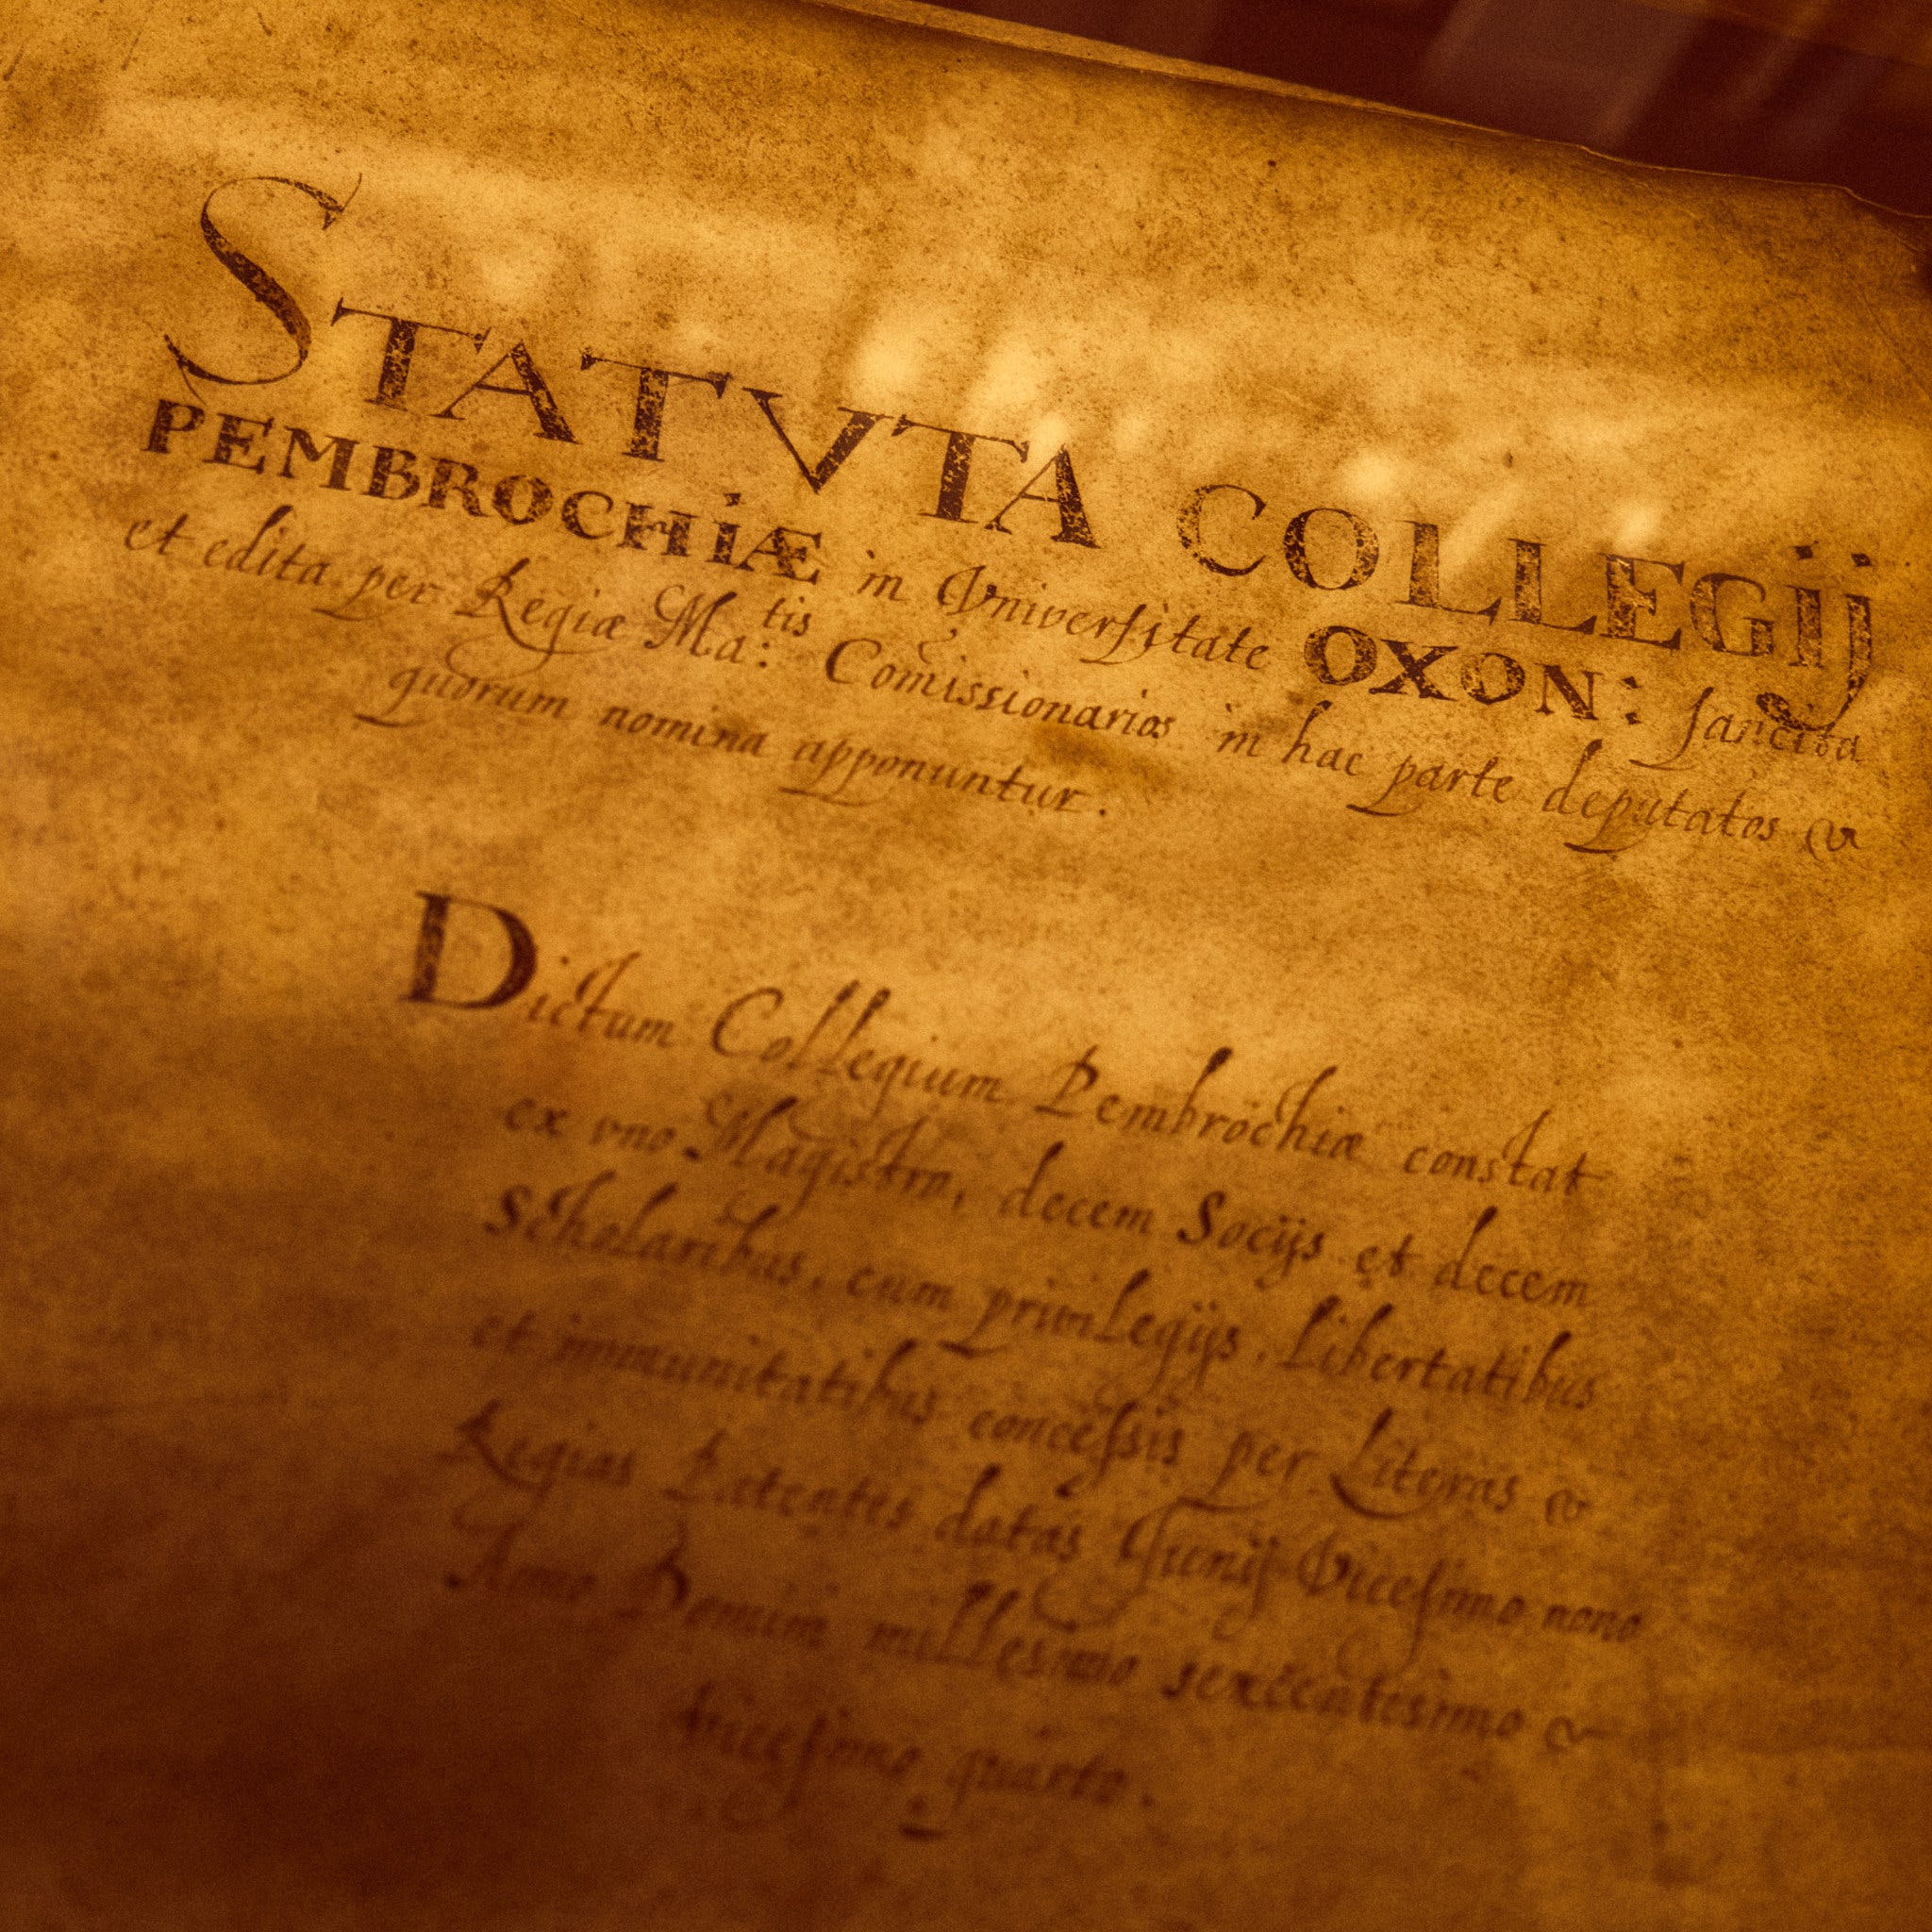 STATVTA COLLEGIJ
PEMBROCHIÆ in Vniverſitate OXON: ſancita
et edita per Regiæ Ma:tis Comissionarios in hac parte deputatos &
quorum nomina apponuntur.
Dictum Collegium Pembrochiæ constat
ex vno Magistro, decem Socijs et decem
Scholaribus, cum privilegijs, libertatibus
et immunitatibus conceſsis per Literas &
Regias Patentes datas Junij Viceſimo nono
Anno Domini millesimo sexcentesimo &
viceſimo quarto.